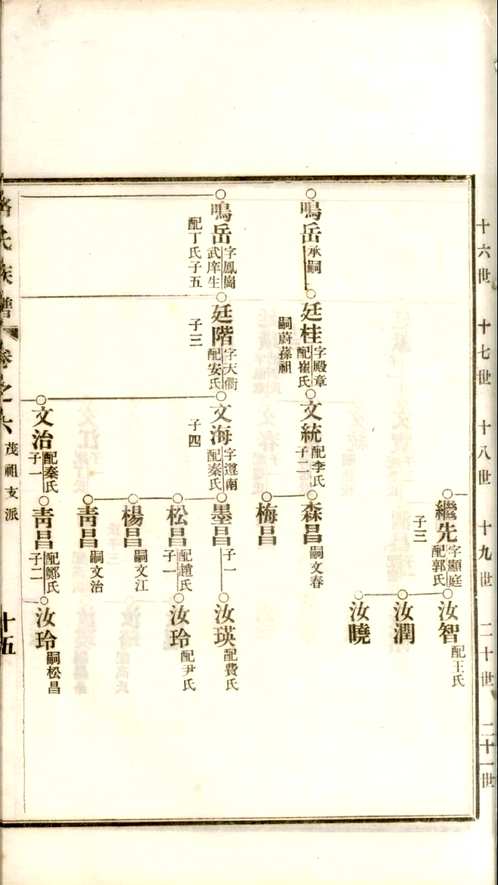 十六世
十七世
十八世
十九世
二十世
二十一世
繼先
字顯庭
配郭氏
子三
汝智
配王氏
汝潤
汝曉
鳴岳
承嗣
廷桂
字殿章
配崔氏
嗣蔚蓀祖
文統
配李氏
子二
森昌
嗣文春
梅昌
鳴岳
字鳳崗
武庠生
配丁氏子五
廷階
字天衢
配安氏
子三
文海
字遵南
配秦氏
子四
墨昌
子一
汝瑛
配費氏
松昌
配趙氏
子一
汝玲
配尹氏
楊昌
嗣文江
靑昌
嗣文治
文治
配秦氏
子一
靑昌
配鄭氏
子二
汝玲
嗣松昌
氏族譜
卷之六
茂祖支派
十五